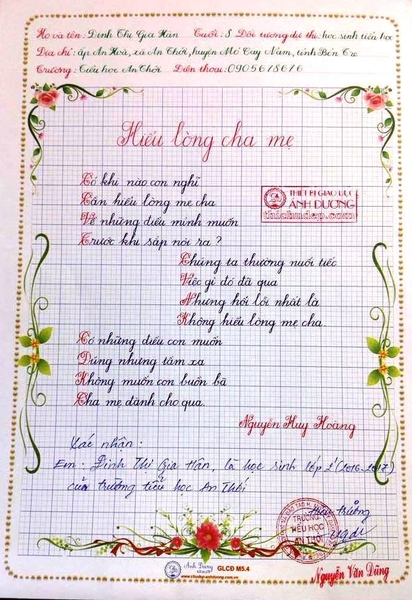 Họ và tên: Đinh Thị Gia Hân Tuổi: 8 Đối tượng dự thi: học sinh tiểu học
Địa chỉ: ấp An Hoà, xã An Thới, huyện Mỏ Cày Nam, tỉnh Bến Tre
Trường: Tiểu học An Thới Điện thoại: 0905618616
Hiểu lòng cha mẹ
Có khi nào con nghĩ
Cần hiểu lòng mẹ cha
Về những điều mình muốn
Trước khi sắp nói ra?
THIẾT BỊ GIÁO DỤC
ÁNH DƯƠNG
thichudep.com
Chúng ta thường nuối tiếc
Việc gì đó đã qua
Nhưng hối lỗi nhất là
Không hiểu lòng mẹ cha.
Có những điều con muốn
Dùng nhưng tầm xa
Không muốn con buồn bã
Cha mẹ dành cho qua.
Nguyễn Huy Hoàng
Xác nhận:
Em: Đinh Thị Gia Hân, là học sinh lớp 2 (2016-2017)
của trường tiểu học An Thới
Hiệu trưởng
TRƯỜNG
TIỂU HỌC
AN THỚI
Ánh Dương
GLCD M5.4
Nguyễn Văn Dũng